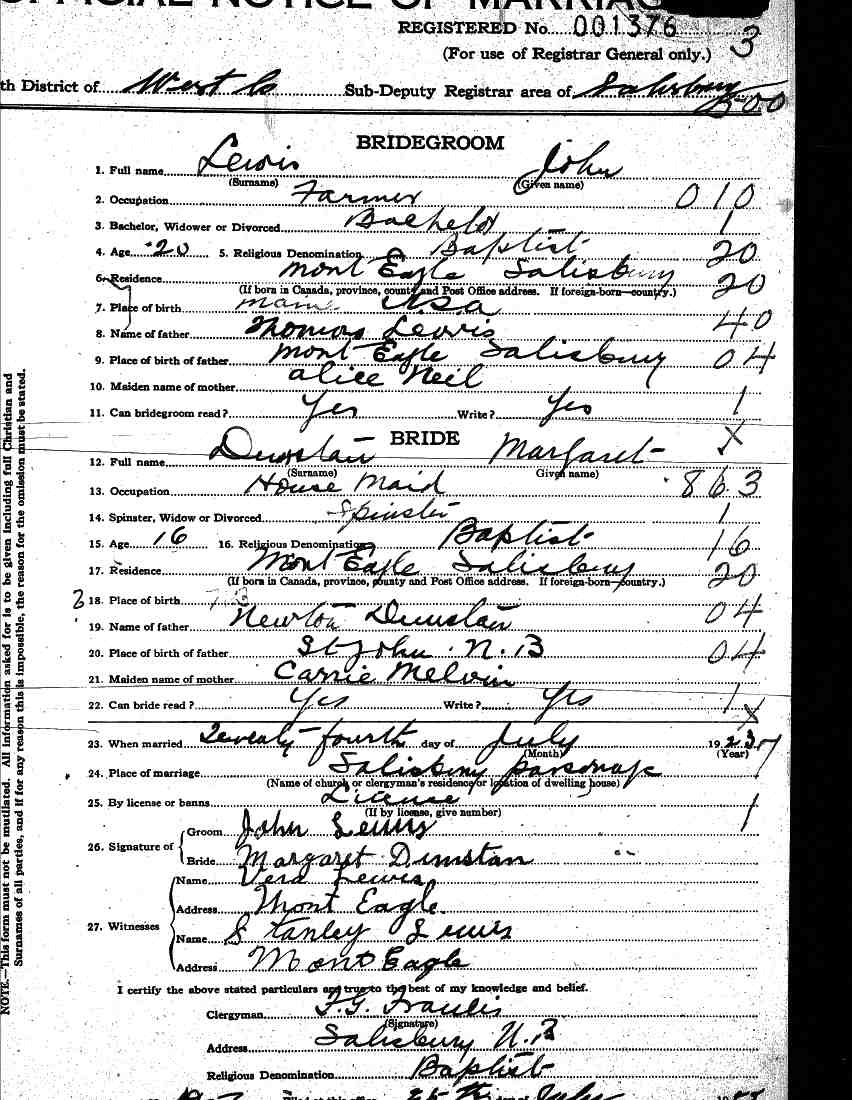 OFFICIAL NOTICE OF MARRIAG
REGISTERED No. 001376
(For use of Registrar General only.) 3
th District of West Co Sub-Deputy Registrar area of Salisbury
BRIDEGROOM
1. Full name Lewis John
(Surname) (Given name)
2. Occupation Farmer 010
3. Bachelor, Widower or Divorced Bachelor 1
4. Age 20 5. Religious Denomination Baptist 20
6. Residence Mont Eagle Salisbury 20
(If born in Canada, province, county and Post Office address. If foreign-born—country.)
7. Place of birth Maine USA 40
8. Name of father Thomas Lewis
9. Place of birth of father Mont Eagle Salisbury 04
10. Maiden name of mother Alice Neil
11. Can bridegroom read? Yes Write? Yes 1
BRIDE X
12. Full name Dunstan Margaret
(Surname) Given name)
13. Occupation House Maid 863
14. Spinster, Widow or Divorced Spinster 1
15. Age 16 16. Religious Denomination Baptist 16
17. Residence Mont Eagle Salisbury 20
(If born in Canada, province, county and Post Office address. If foreign-born—country.)
18. Place of birth 04
19. Name of father Newton Dunstan
20. Place of birth of father St John N.B 04
21. Maiden name of mother Carrie Melvin
22. Can bride read? Yes Write? Yes 1
X
23. When married Twenty fourth day of July 1923
(Month) (Year)
24. Place of marriage Salisbury parsonage
(Name of church or clergyman's residence or location of dwelling house)
25. By license or banns License 1
(If by license, give number)
26. Signature of Groom John Lewis
Bride Margaret Dunstan
27. Witnesses Name Vera Lewis
Address Mont Eagle
Name Stanley Lewis
Address Mont Eagle
I certify the above stated particulars are true to the best of my knowledge and belief.
Clergyman
(Signature)
Address Salisbury N.B
Religious Denomination Baptist
25th July
NOTE.—This form must not be mutilated. All information asked for is to be given including full Christian and
Surnames of all parties, and if for any reason this is impossible, the reason for the omission must be stated.